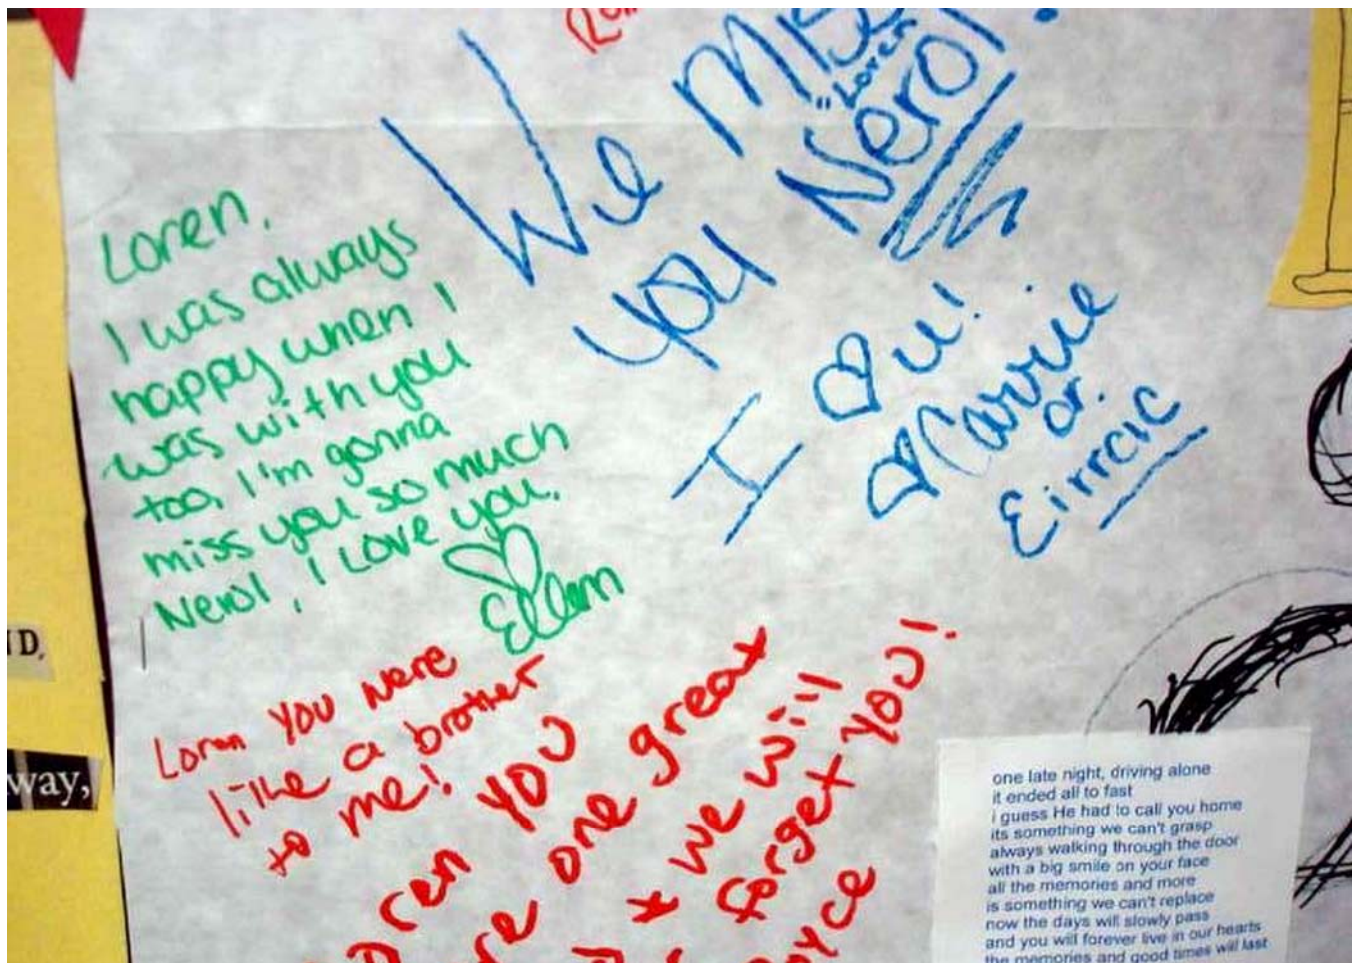 We Miss
"Loren"
you Nerol!
I u!
Carrie
or.
Eirrac
Loren,
I was always
happy when I
was with you
too, I'm gonna
miss you so much
Nerol, I love you.
Ellen
Loren you were
like a brother
to me!
you
one great
we will
forget you!
D,
way,
one late night, driving alone
it ended all to fast
i guess He had to call you home
its something we can't grasp
always walking through the door
with a big smile on your face
all the memories and more
is something we can't replace
now the days will slowly pass
and you will forever live in our hearts
the memories and good times will last